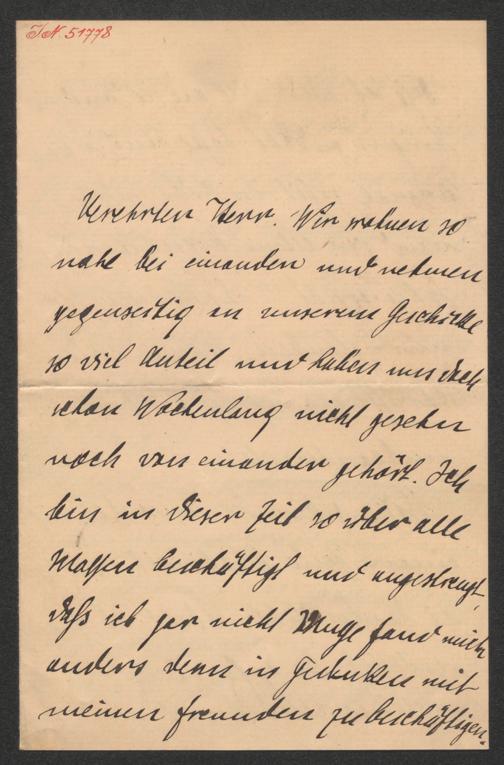 I.N. 51778
Verehrter Herr. Wir wohnen so
nahe bei einander und nehmen
gegenseitig an unserem Geschicke
so viel Anteil und haben uns doch
schon Wochenlang nicht gesehn
noch von einander gehört. Ich
bin in dieser Zeit so über alle
Massen beschäftigt und angestrengt,
daß ich gar nicht Muße fand mich
anders denn in Gedanken mit
meinen Freunden zu beschäftigen.